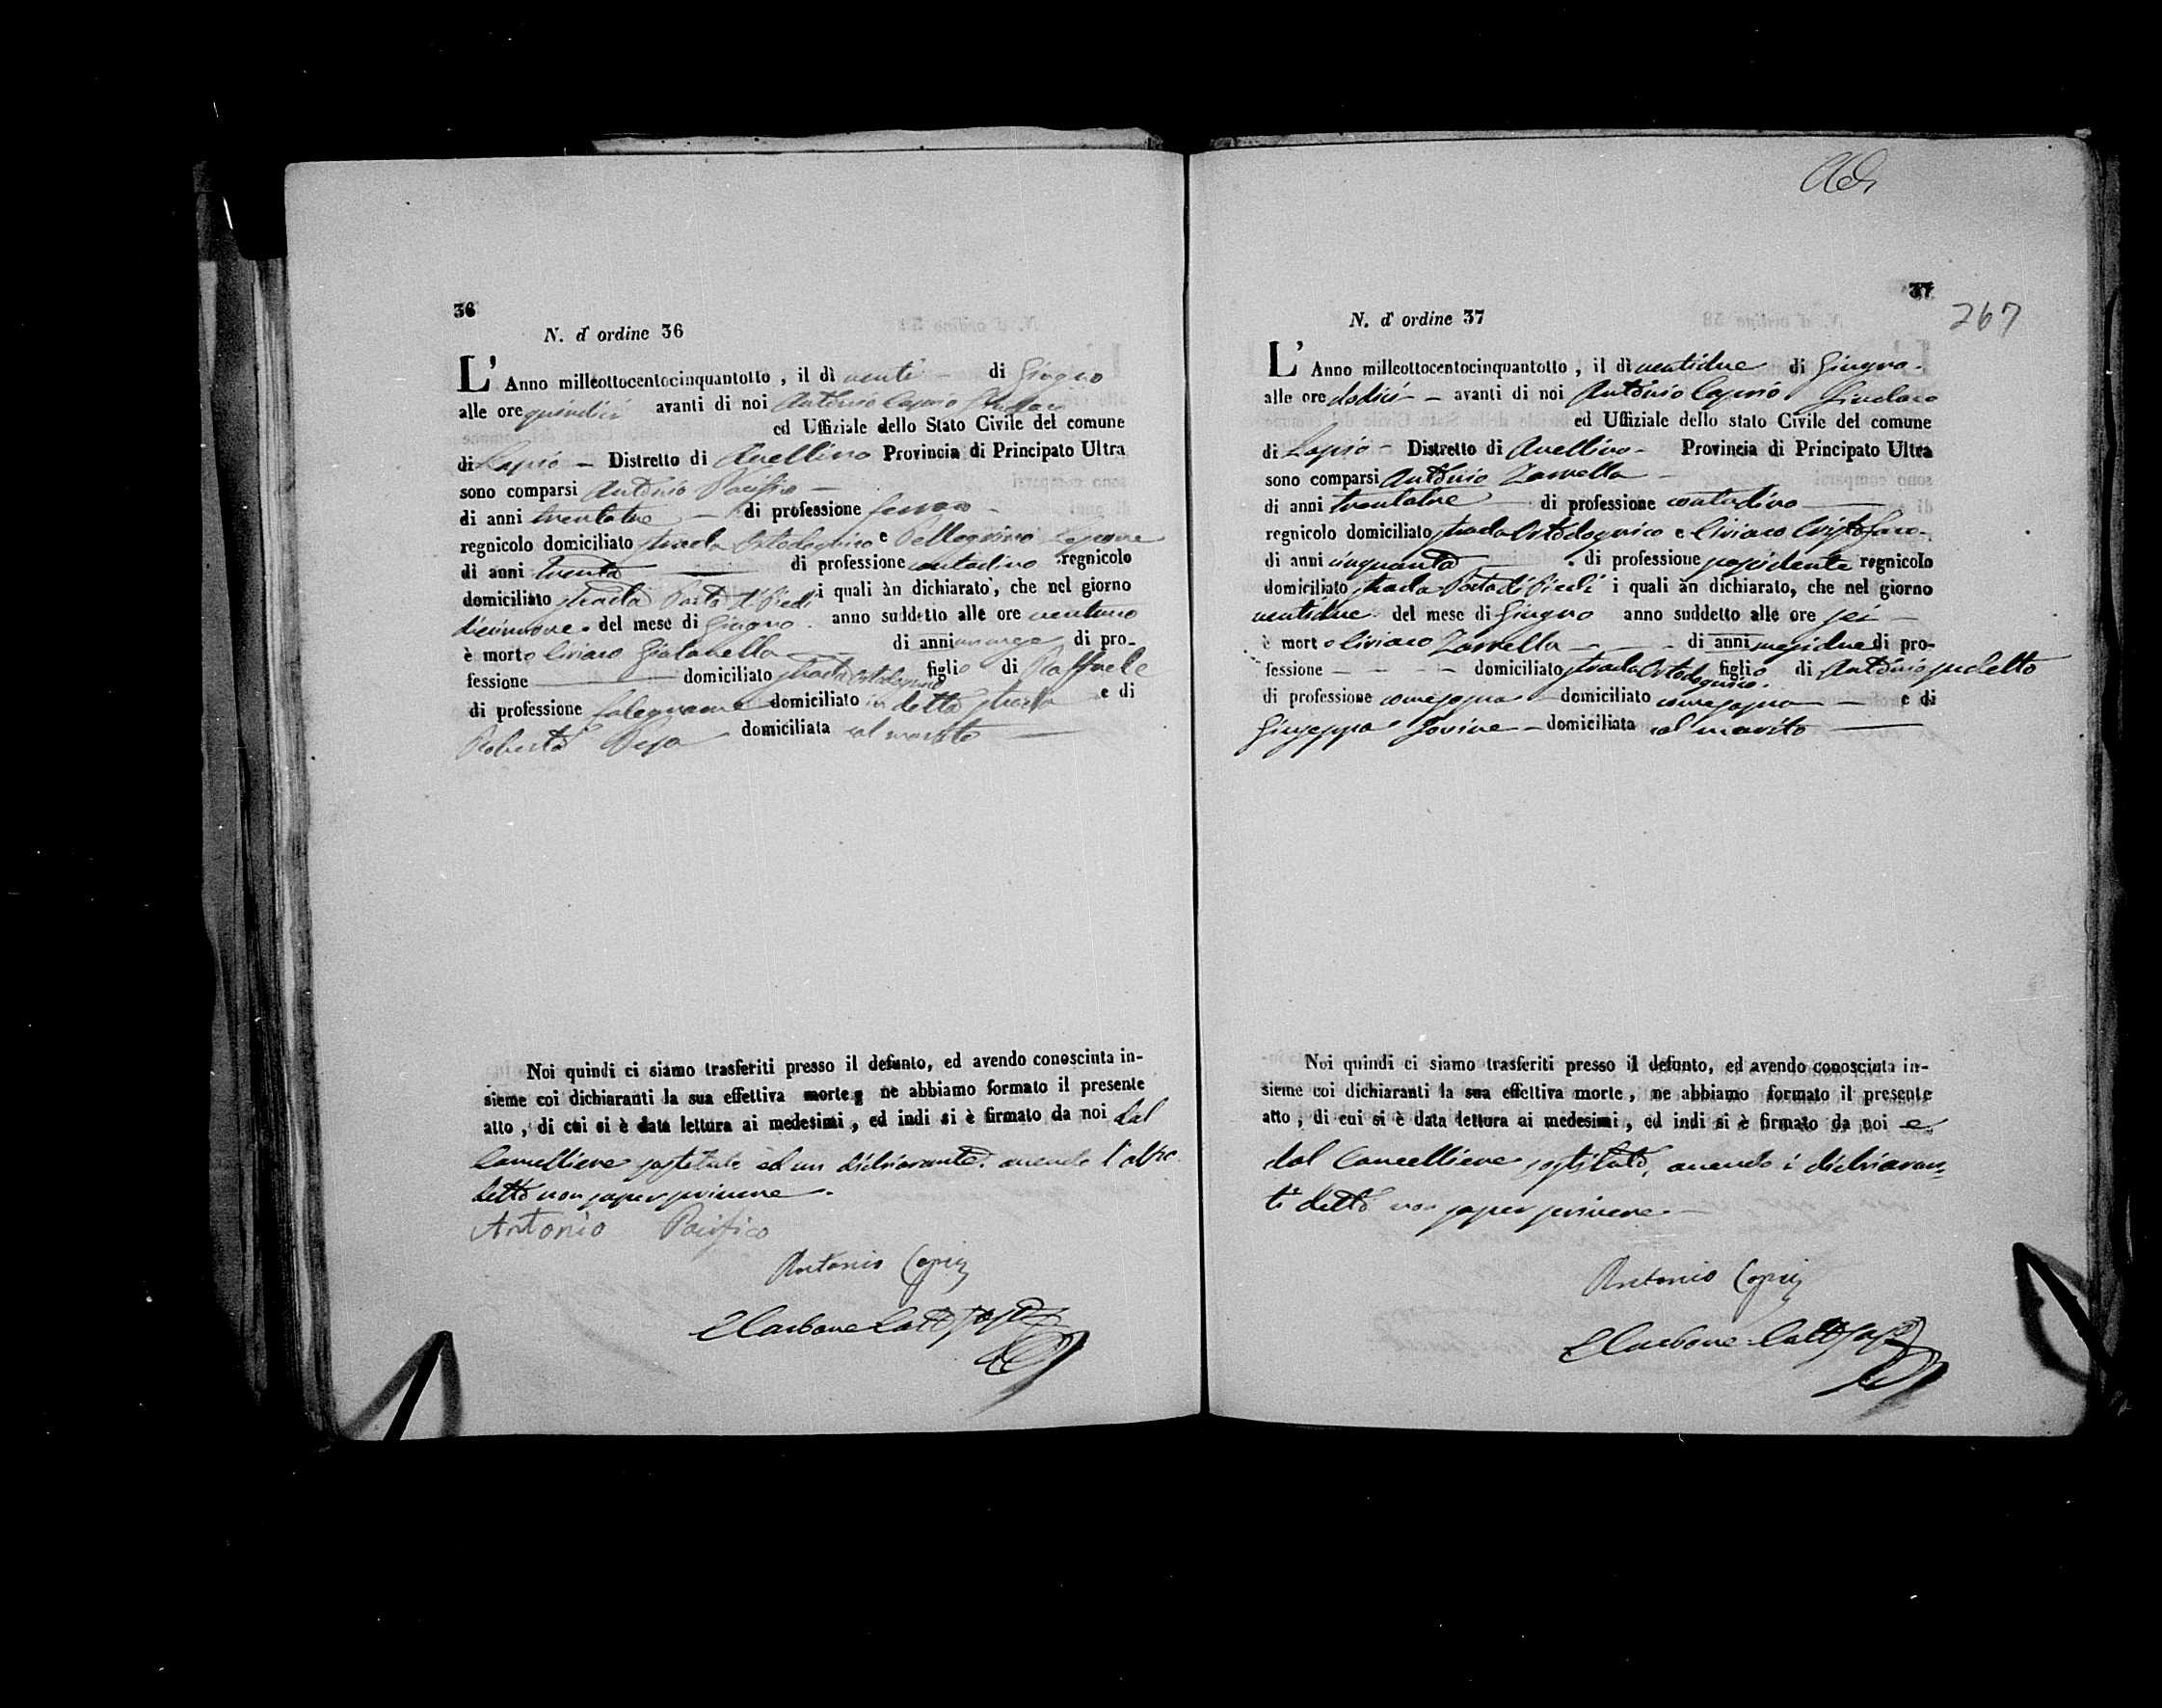 36
N. d' ordine 36
L' Anno milleottocentocinquantotto, il dì venti – di Giugno
alle ore quindici avanti di noi Antonio Caprio Sindaco
ed Uffiziale dello Stato Civile del comune
di Lapio – Distretto di Avellino Provincia di Principato Ultra
sono comparsi Antonio Pacifico –
di anni trentatre – di professione
regnicolo domiciliato strada e Pellegrino
di anni trenta – di professione contadino regnicolo
domiciliato strada Porta di Piedi i quali àn dichiarato, che nel giorno
diecinnove del mese di Giugno. anno suddetto alle ore ventuno
è morto Civiaco di anni di pro-
fessione — domiciliato strada figlio di Raffaele
di professione falegname domiciliato in detta strada e di
Roberta domiciliata col marito —
Noi quindi ci siamo trasferiti presso il defunto, ed avendo conosciuta in-
sieme coi dichiaranti la sua effettiva morte, ne abbiamo formato il presente
atto, di cui si è data lettura ai medesimi, ed indi si è firmato da noi dal
Cancelliere sostituto ed un dichiarante. avendo l'altro
detto non saper scrivere.
Antonio Pacifico
Antonio Caprio
C Carbone
37
267
N. d' ordine 37
L' Anno milleottocentocinquantotto, il dì ventidue di Giugno.
alle ore dodici – avanti di noi Antonio Caprio Sindaco
ed Uffiziale dello stato Civile del comune
di Lapio – Distretto di Avellino – Provincia di Principato Ultra
sono comparsi Antonio Zarrella –
di anni trentatre – di professione contadino —
regnicolo domiciliato strada e Civiaco Cristofaro –
di anni cinquanta – di professione possidente regnicolo
domiciliato strada Porta di Piedi i quali àn dichiarato, che nel giorno
ventidue del mese di Giugno anno suddetto alle ore sei –
è morto Civiaco Zarrella – di anni mesi due di pro-
fessione – – – – domiciliato strada figlio di Antonio sudetto
di professione come sopra domiciliato come sopra – e di
Giuseppa Iovine – domiciliata col marito —
Noi quindi ci siamo trasferiti presso il defunto, ed avendo conosciuta in-
sieme coi dichiaranti la sua effettiva morte, ne abbiamo formato il presente
atto, di cui si è data lettura ai medesimi, ed indi si è firmato da noi e
dal Cancelliere sostituto, avendo i dichiaran-
ti detto non saper scrivere. –
Antonio Caprio
C Carbone